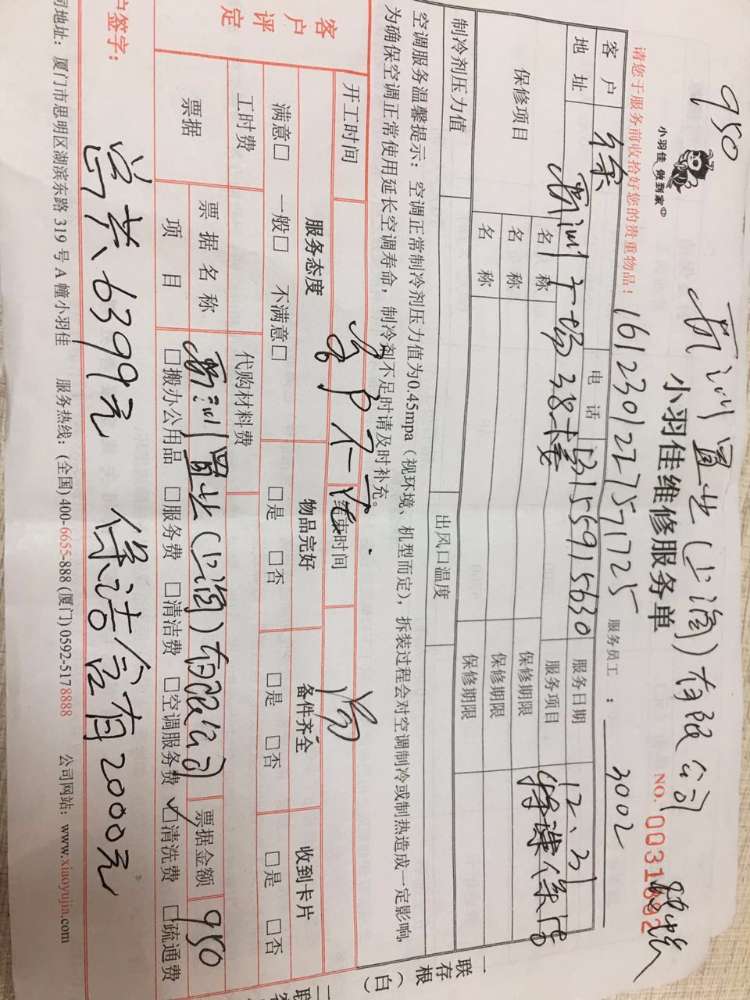 950
新洲置业(上海)有限公司
小羽佳 做到家
小羽佳维修服务单
NO. 0031892
请您于服务前收拾好您的贵重物品: 161230122757 1725 服务员工: 3002
客户 徐 电话 13159915630 服务日期 12、31
地址 新洲广场38卡娄 服务项目 特殊保洁
保修项目 名称 保修期限
名称 保修期限
名称 保修期限
制冷剂压力值 出风口温度
空调服务温馨提示: 空调正常制冷剂压力值为0.45mpa (视环境、机型而定), 拆装过程会对空调制冷或制热造成一定影响,
为确保空调正常使用延长空调寿命, 制冷剂不足时请及时补充。
开工时间 结束时间
客户评定 服务态度 物品完好 备件齐全 收到卡片
满意□ 一般□ 不满意□ □是 □否 □是 □否 □是 □否
工时费 代购材料费
票据 票据名称 新洲置业(上海)有限公司 票据金额 950
项目 □搬办公用品 □服务费 □清洁费 □空调服务费 □清洗费 □疏通费
户签字: 尚共6399元 保洁含有2000元
司地址: 厦门市思明区湖滨东路 319 号 A 幢小羽佳 服务热线: (全国) 400-6655-888 (厦门) 0592-5178888 公司网站: www.xiaoyujia.com
一联存根(白)
二联